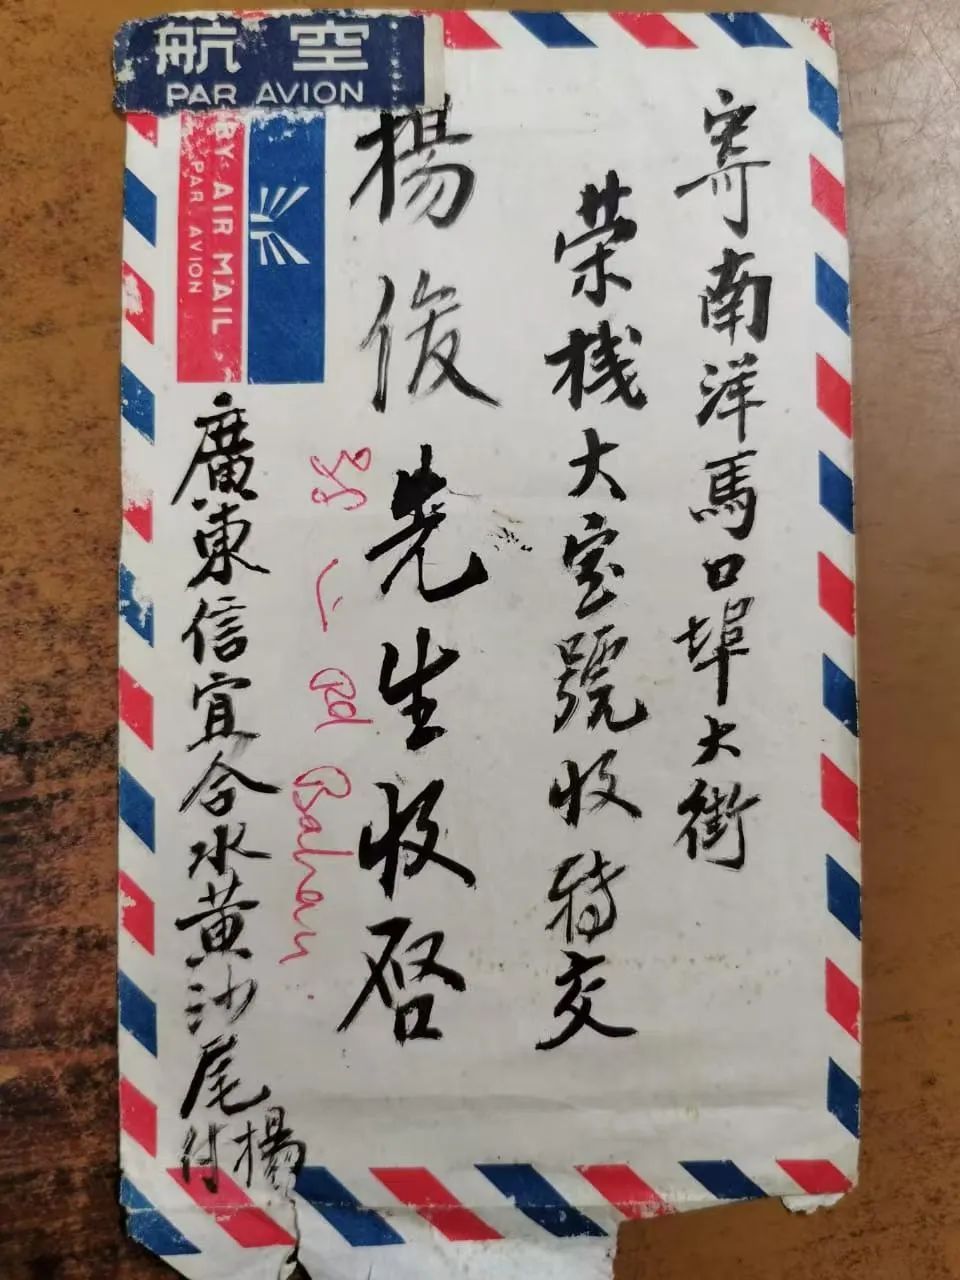 航空
PAR AVION
BY AIR MAIL
PAR AVION
寄南洋馬口埠大街
荣栈大宝號收特交
楊俊先生收啓
廣東信宜合水黄沙尾
楊付